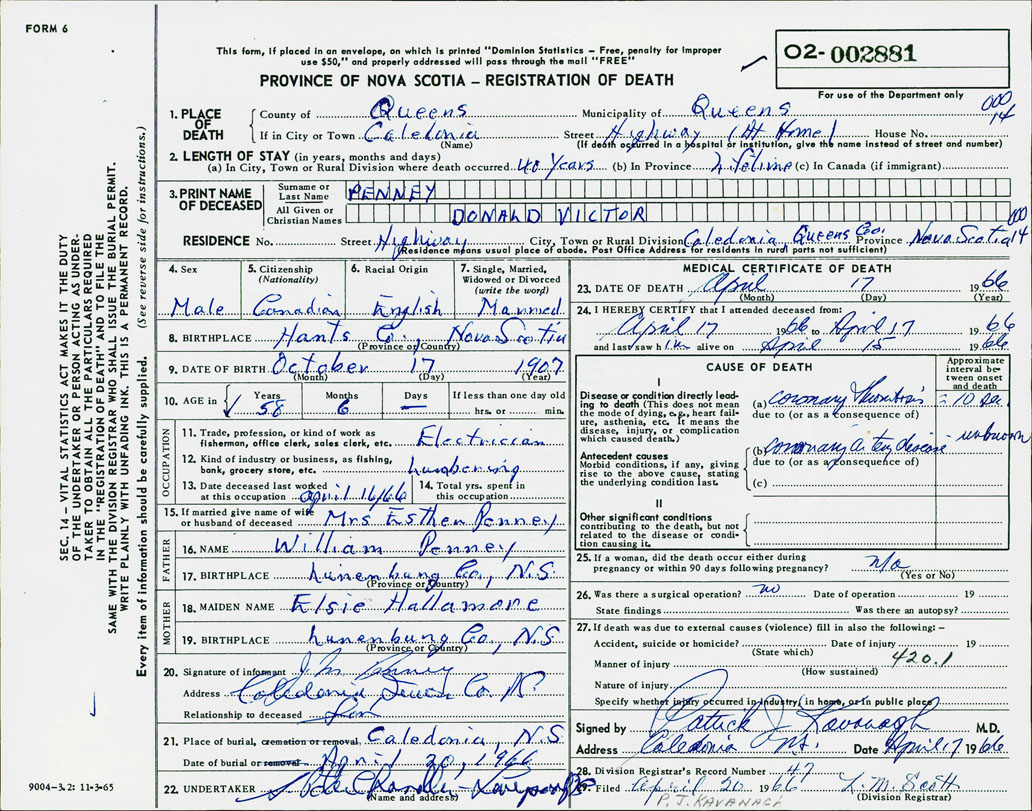 FORM 6
This form, if placed in an envelope, on which is printed "Dominion Statistics – Free, penalty for improper
use $50," and properly addressed will pass through the mail "FREE"
PROVINCE OF NOVA SCOTIA – REGISTRATION OF DEATH
02- 002881
For use of the Department only
1. PLACE OF DEATH
County of Queens Municipality of Queens 000 14
If in City or Town Caledonia Street Highway (At Home) House No.
(Name) (If death occurred in a hospital or institution, give the name instead of street and number)
2. LENGTH OF STAY (in years, months and days)
(a) In City, Town or Rural Division where death occurred 40 years (b) In Province Lifetime (c) In Canada (if immigrant)
3. PRINT NAME OF DECEASED
Surname or Last Name PENNEY
All Given or Christian Names DONALD VICTOR
RESIDENCE No. Street Highway City, Town or Rural Division Caledonia Queens Co. Province Nova Scotia 000 14
(Residence means usual place of abode. Post Office Address for residents in rural parts not sufficient)
4. Sex Male
5. Citizenship (Nationality) Canadian
6. Racial Origin English
7. Single, Married, Widowed or Divorced (write the word) Married
8. BIRTHPLACE Hants Co., Nova Scotia
(Province or Country)
9. DATE OF BIRTH October 17 1907
(Month) (Day) (Year)
10. AGE in Years 58 Months 6 Days — If less than one day old hrs. or min.
OCCUPATION
11. Trade, profession, or kind of work as fisherman, office clerk, sales clerk, etc. Electrician
12. Kind of industry or business, as fishing, bank, grocery store, etc. Lumbering
13. Date deceased last worked at this occupation April 16/66
14. Total yrs. spent in this occupation
15. If married give name of wife or husband of deceased Mrs Esther Penney
FATHER
16. NAME William Penney
17. BIRTHPLACE Lunenburg Co., N.S.
(Province or Country)
MOTHER
18. MAIDEN NAME Elsie Hallamore
19. BIRTHPLACE Lunenburg Co., N.S
(Province or Country)
20. Signature of informant Penney
Address Caledonia Queens Co. N.S.
Relationship to deceased Son
21. Place of burial, cremation or removal Caledonia, N.S
Date of burial or removal April 20, 1966
22. UNDERTAKER
(Name and address)
MEDICAL CERTIFICATE OF DEATH
23. DATE OF DEATH April 17 1966
(Month) (Day) (Year)
24. I HEREBY CERTIFY that I attended deceased from:
April 17 1966 to April 17 1966
and last saw him alive on April 15 1966
CAUSE OF DEATH
Approximate interval between onset and death
I
Disease or condition directly leading to death (This does not mean the mode of dying, e.g., heart failure, asthenia, etc. It means the disease, injury, or complication which caused death.)
(a) coronary thrombosis
due to (or as a consequence of)
Antecedent causes
Morbid conditions, if any, giving rise to the above cause, stating the underlying condition last.
(b) coronary artery disease unknown
due to (or as a consequence of)
(c)
II
Other significant conditions contributing to the death, but not related to the disease or condition causing it.
25. If a woman, did the death occur either during pregnancy or within 90 days following pregnancy? n/a
(Yes or No)
26. Was there a surgical operation? no Date of operation 19
State findings Was there an autopsy?
27. If death was due to external causes (violence) fill in also the following: –
Accident, suicide or homicide? Date of injury 19
(State which)
Manner of injury 420.1
(How sustained)
Nature of injury
Specify whether injury occurred in industry, in home, or in public place
Signed by Patrick J Kavanagh M.D.
Address Caledonia N.S. Date April 17 1966
28. Division Registrar's Record Number 47
29. Filed April 20 1966 L. M. Scott
P. J. KAVANAGH (Division Registrar)
SEC. 14 – VITAL STATISTICS ACT MAKES IT THE DUTY
OF THE UNDERTAKER OR PERSON ACTING AS UNDER-
TAKER TO OBTAIN ALL THE PARTICULARS REQUIRED
IN THE "REGISTRATION OF DEATH" AND TO FILE THE
SAME WITH THE DIVISION REGISTRAR WHO SHALL ISSUE THE BURIAL PERMIT.
WRITE PLAINLY WITH UNFADING INK. THIS IS A PERMANENT RECORD.
Every item of information should be carefully supplied. (See reverse side for instructions.)
9004–3.2: 11-3-65